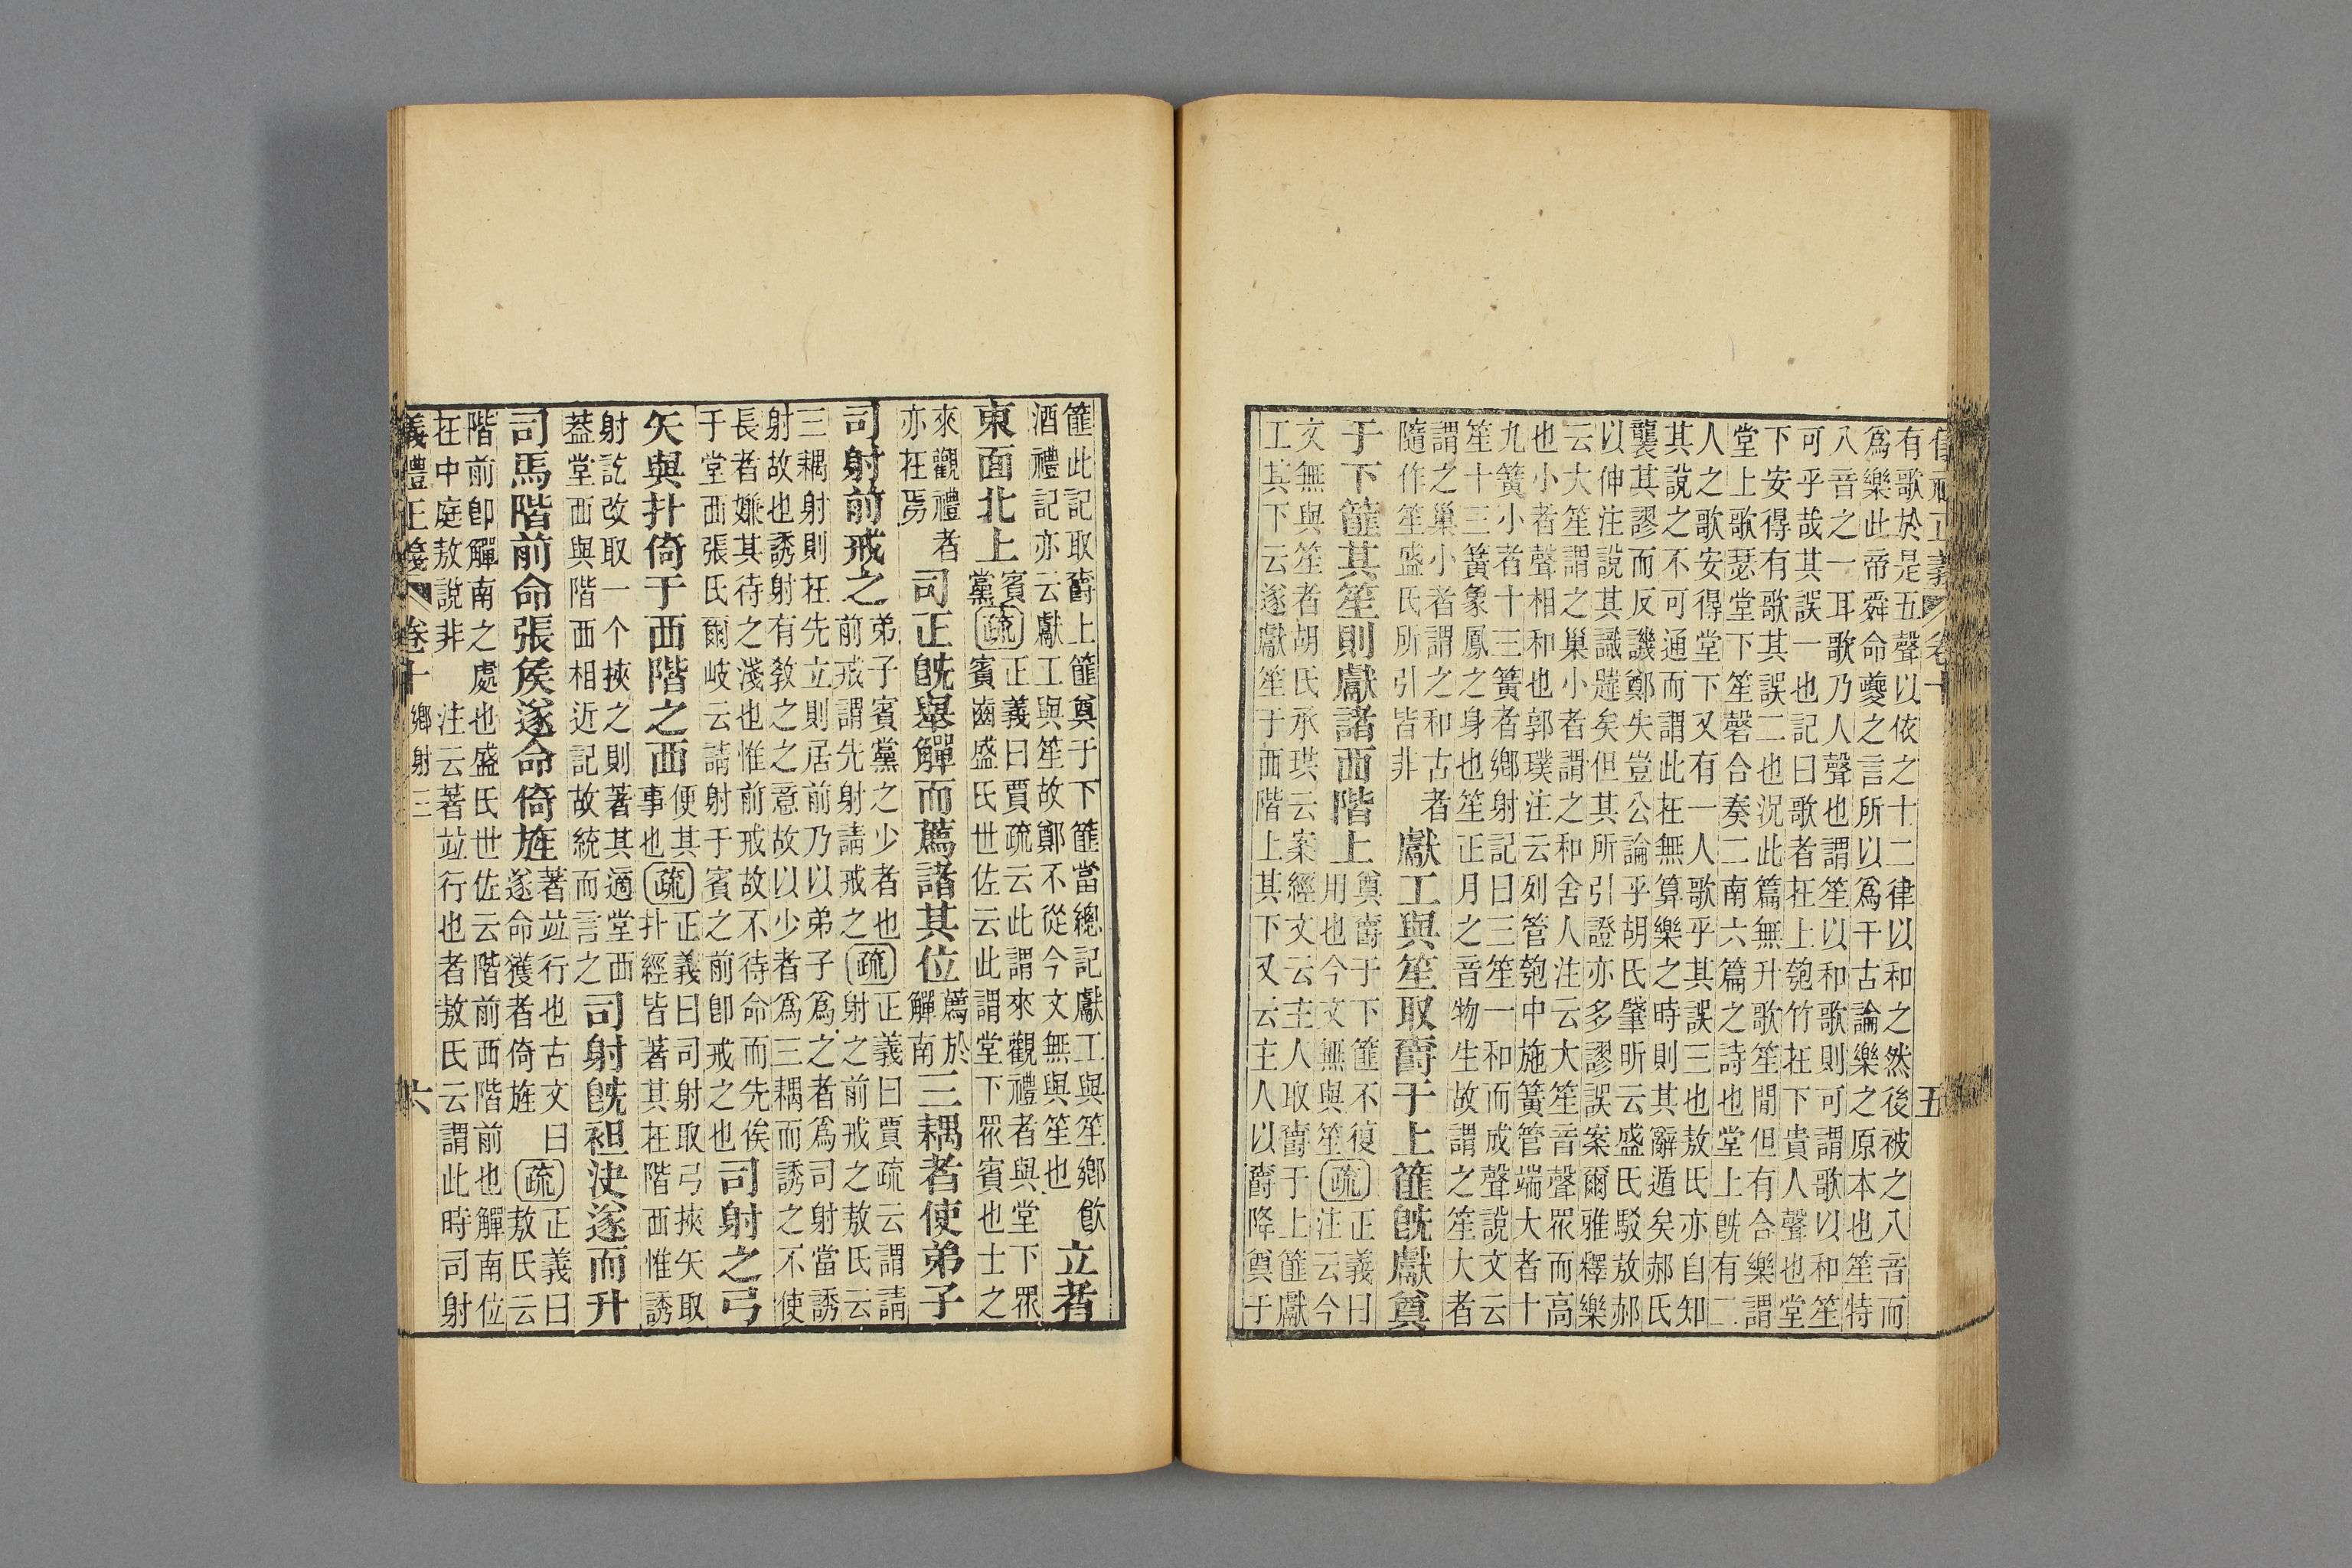 儀禮正義 卷十 五
有歌於是五聲以依之十二律以和之然後被之八音而
爲樂此帝舜命夔之言所以爲千古論樂之原本也笙特
八音之一耳歌乃人聲也謂笙以和歌則可謂歌以和笙
可乎哉其誤一也記曰歌者在上匏竹在下貴人聲也堂
下安得有歌其誤二也況此篇無升歌笙閒但有合樂謂
堂上歌瑟堂下笙磬合奏二南六篇之詩也堂上旣有二
人之歌安得堂下又有一人歌乎其誤三也敖氏亦自知
其說之不可通而謂此在無算樂之時則其辭遁矣郝氏
襲其謬而反譏鄭失豈公論乎胡氏肇昕云盛氏駁敖郝
以伸注說其識韙矣但其所引證亦多謬誤案爾雅釋樂
云大笙謂之巢小者謂之和舍人注云大笙音聲眾而高
也小者聲相和也郭璞注云列管匏中施簧管端大者十
九簧小者十三簧者鄉射記曰三笙一和而成聲說文云
笙十三簧象鳳之身也笙正月之音物生故謂之笙大者
謂之巢小者謂之和古者
隨作笙盛氏所引皆非
獻工與笙取爵于上篚旣獻奠
于下篚其笙則獻諸西階上
奠爵于下篚不復
用也今文無與笙
疏
正義曰
注云今
文無與笙者胡氏承珙云案經文云主人取爵于上篚獻
工其下云遂獻笙于西階上其下又云主人以爵降奠于
篚此記取爵上篚奠于下篚當總記獻工與笙鄉飮
酒禮記亦云獻工與笙故鄭不從今文無與笙也
立者
東面北上
賓
黨
疏
正義曰賈疏云此謂來觀禮者與堂下眾
賓齒盛氏世佐云此謂堂下眾賓也士之
來觀禮者
亦在焉
司正旣舉觶而薦諸其位
薦於
觶南
三耦者使弟子
司射前戒之
弟子賓黨之少者也
前戒謂先射請戒之
疏
正義曰賈疏云謂請
射之前戒之敖氏云
三耦射則在先立則居前乃以弟子爲之者爲司射當誘
射故也誘射有敎之之意故以少者爲三耦而誘之不使
長者嫌其待之淺也惟前戒故不待命而先俟
于堂西張氏爾岐云請射于賓之前卽戒之也
司射之弓
矢與扑倚于西階之西
便其
事也
疏
正義曰司射取弓挾矢取
扑經皆著其在階西惟誘
射訖改取一个挾之則著其適堂西
葢堂西與階西相近記故統而言之
司射旣袒決遂而升
司馬階前命張侯遂命倚旌
著竝行也古文曰
遂命獲者倚旌
疏
正義曰
敖氏云
階前卽觶南之處也盛氏世佐云階前西階前也觶南位
在中庭敖說非 注云著竝行也者敖氏云謂此時司射
儀禮正義 卷十 鄉射三 六